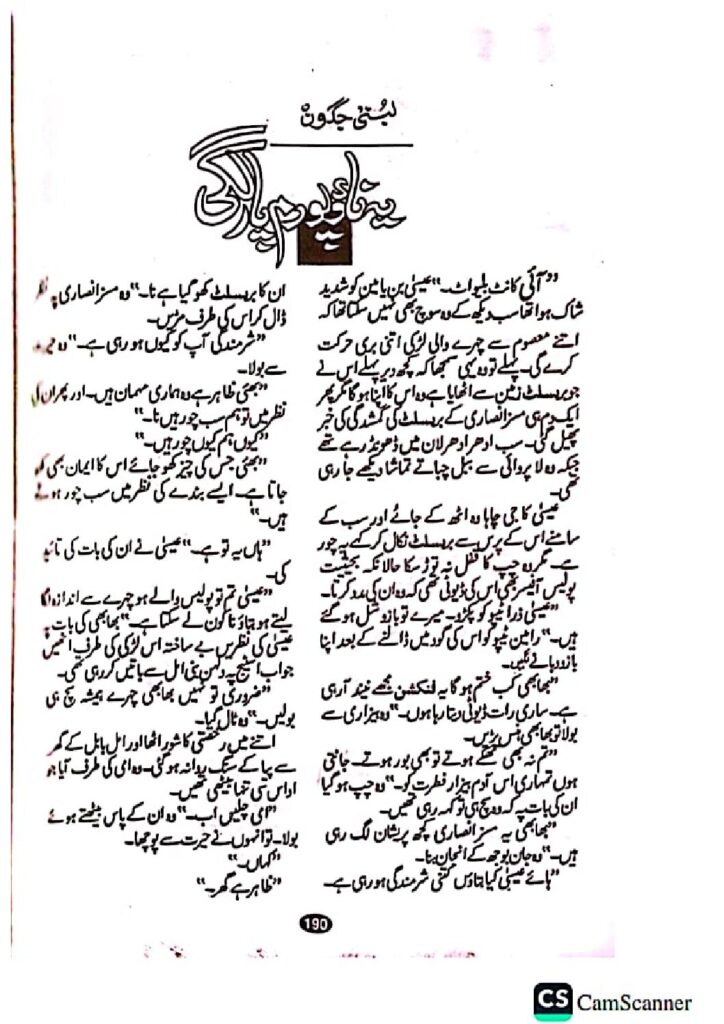 لبنیٰ جگنون
یہ ناؤ یوں پار لگی
”آئی کانٹ بلیواٹ۔“ عیسیٰ بن یامین کو شدید
شاک ہوا تھا سب دیکھ کے وہ سوچ بھی نہیں سکتا تھا کہ
اتنے معصوم سے چہرے والی لڑکی اتنی بری حرکت
کرے گی۔ پہلے تو وہ یہی سمجھا کہ کچھ دیر پہلے اس نے
جو بریسلٹ زمین سے اٹھایا ہے وہ اس کا اپنا ہوگا مگر پھر
ایکدم ہی مسز انصاری کے بریسلٹ کی گمشدگی کی خبر
پھیل گئی۔ سب ادھر ادھر لان میں ڈھونڈ رہے تھے
جبکہ وہ لاپروائی سے ببل چباتے تماشا دیکھے جا رہی
تھی۔
عیسیٰ کا جی چاہا وہ اٹھ کے جائے اور سب کے
سامنے اس کے پرس سے بریسلٹ نکال کر کہے یہ چور
ہے۔ مگر وہ چپ کا قفل نہ توڑ سکا حالانکہ بحیثیت
پولیس آفیسر بھی اس کی ڈیوٹی تھی کہ وہ ان کی مدد کرتا۔
”عیسیٰ ذرا ٹیپو کو پکڑو۔ میرے تو بازو شل ہو گئے
ہیں۔“ رامین ٹیپو کو اس کی گود میں ڈالنے کے بعد اپنا
بازو دبانے لگیں۔
”بھابھی کب ختم ہوگا یہ فنکشن مجھے نیند آرہی
ہے۔ ساری رات ڈیوٹی دیتا رہا ہوں۔“ وہ بیزاری سے
بولا تو بھابھی ہنس پڑیں۔
”تم نہ بھی تھکے ہوتے تو بھی بور ہوتے۔ جانتی
ہوں تمہاری اس آدم بیزار فطرت کو۔“ وہ چپ ہو گیا
ان کی بات پہ کہ وہ سچ ہی تو کہہ رہی تھیں۔
”بھابھی یہ مسز انصاری کچھ پریشان لگ رہی
ہیں۔“ وہ جان بوجھ کے انجان بنا۔
”ہائے عیسیٰ کیا بتاؤں کتنی شرمندگی ہو رہی ہے۔
ان کا بریسلٹ کھو گیا ہے نا۔“ وہ مسز انصاری پہ نظر
ڈال کر اس کی طرف مڑیں۔
”شرمندگی آپ کو کیوں ہو رہی ہے۔“ وہ
سے بولا۔
”بھئی ظاہر ہے وہ ہماری مہمان ہیں۔ اور پھر ان کی
نظر میں تو ہم سب چور ہیں نا۔“
”کیوں ہم کیوں چور ہیں۔“
”بھئی جس کی چیز کھو جائے اس کا ایمان بھی کھو
جاتا ہے۔ ایسے بندے کی نظر میں سب چور ہوتے
ہیں۔“
”ہاں یہ تو ہے۔“ عیسیٰ نے ان کی بات کی تائید
کی۔
”عیسیٰ تم تو پولیس والے ہو چہرے سے اندازہ لگا
لیتے ہو بتاؤ نا کون لے سکتا ہے۔“ بھابھی کی بات پہ
عیسیٰ کی نظریں بے ساختہ اس لڑکی کی طرف اٹھیں
جو اب اسٹیج پہ دلہن بنی امل سے باتیں کر رہی تھی۔
”ضروری تو نہیں بھابھی چہرے ہمیشہ سچ ہی
بولیں۔“ وہ ٹال گیا۔
اتنے میں رخصتی کا شور اٹھا اور امل بابل کے گھر
سے پیا کے سنگ روانہ ہو گئی۔ وہ امی کی طرف آیا جو
اداس سی تنہا بیٹھی تھیں۔
”امی چلیں اب۔“ وہ ان کے پاس بیٹھتے ہوئے
بولا۔ تو انہوں نے حیرت سے پوچھا۔
”کہاں۔“
”ظاہر ہے گھر۔“
190
CS CamScanner